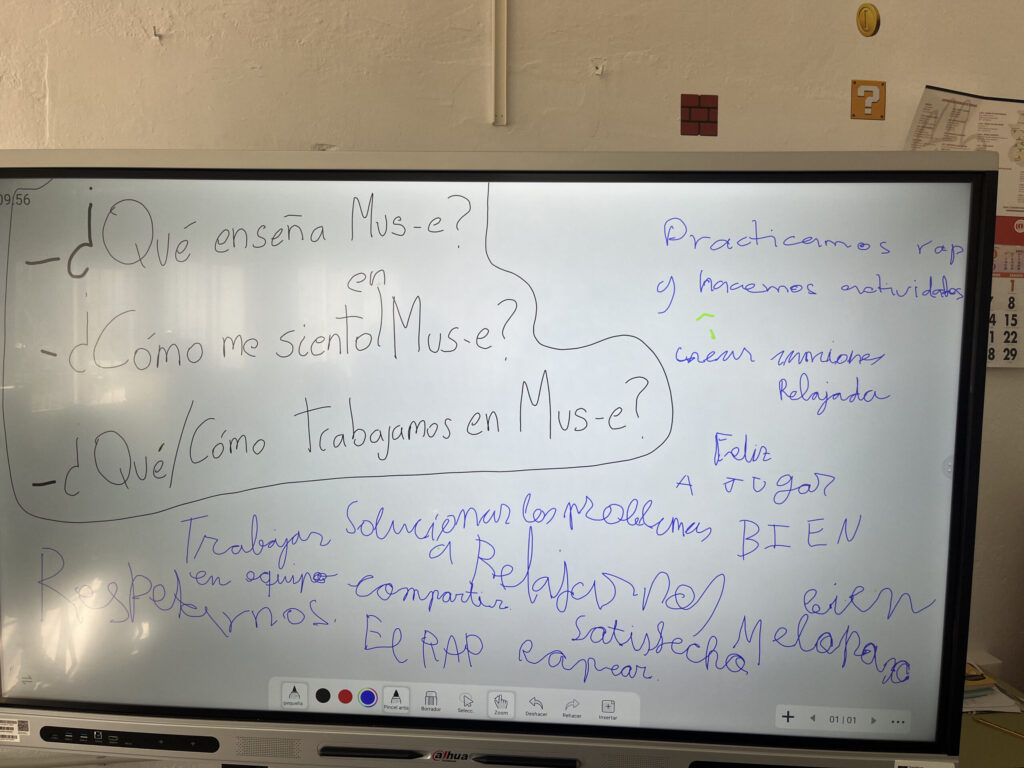 09:56
- ¿Qué enseña Mus-e?
- ¿Cómo me siento en Mus-e?
- ¿Qué/Cómo trabajamos en Mus-e?
Practicamos rap
y hacemos actividades
Relajada
Feliz
A JUgar
Trabajar
en equipo
Solucionar los problemas
BIEN
a Relajarnos
Respetarnos.
compartir
bien
El RAP
rapear.
satisfecho
Me lo paso
pequeña
Pincel artís
Borrador
Selecc.
Zoom
Deshacer
Rehacer
Insertar
01 | 01
alhua
1
8
4 15
1 22
8 29
?